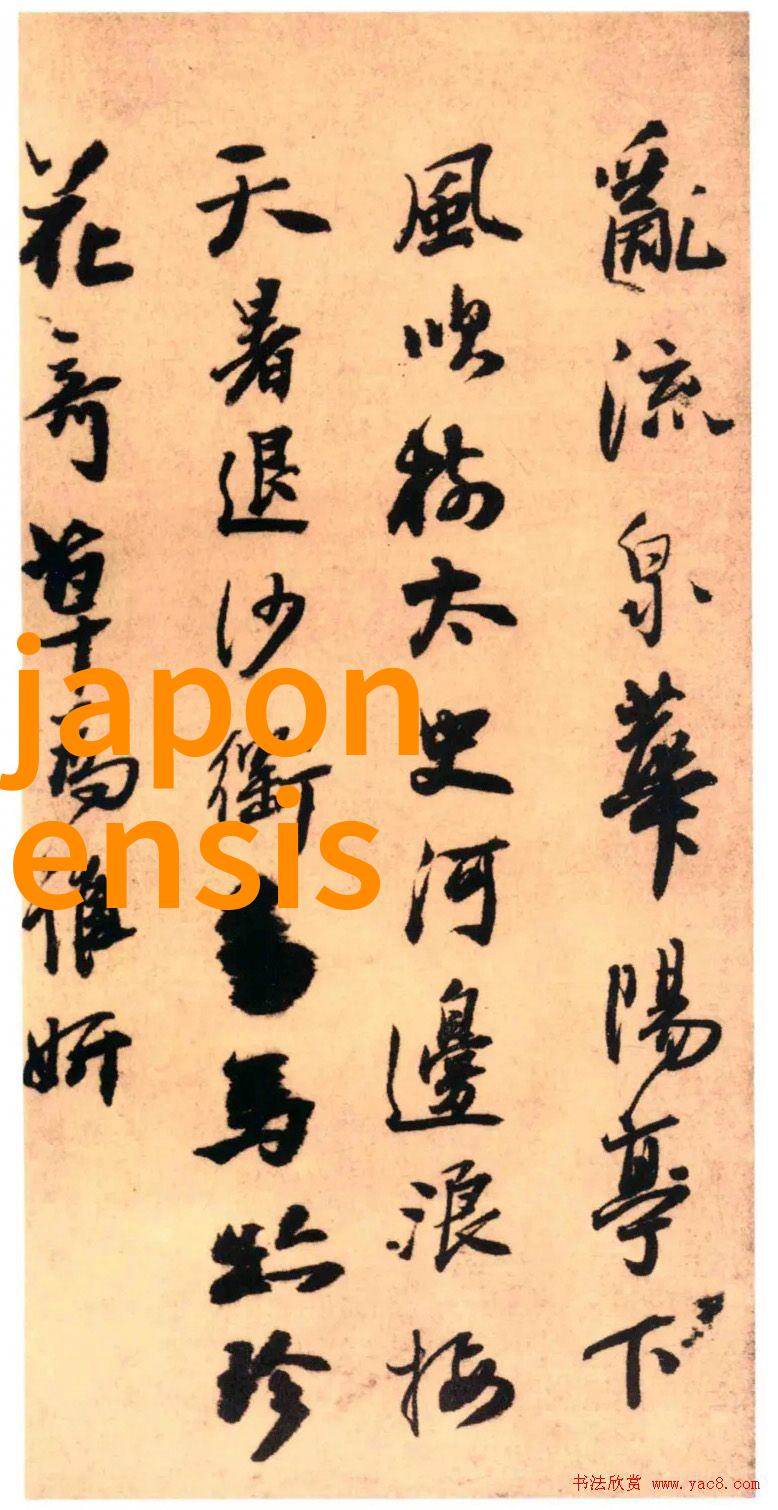 亂流泉華陽亭下
風吹樹太史河邊浪接
天暑退沙衢馬跡珍
花奇草為誰妍
japon
ensis
书法欣赏 www.yac8.com